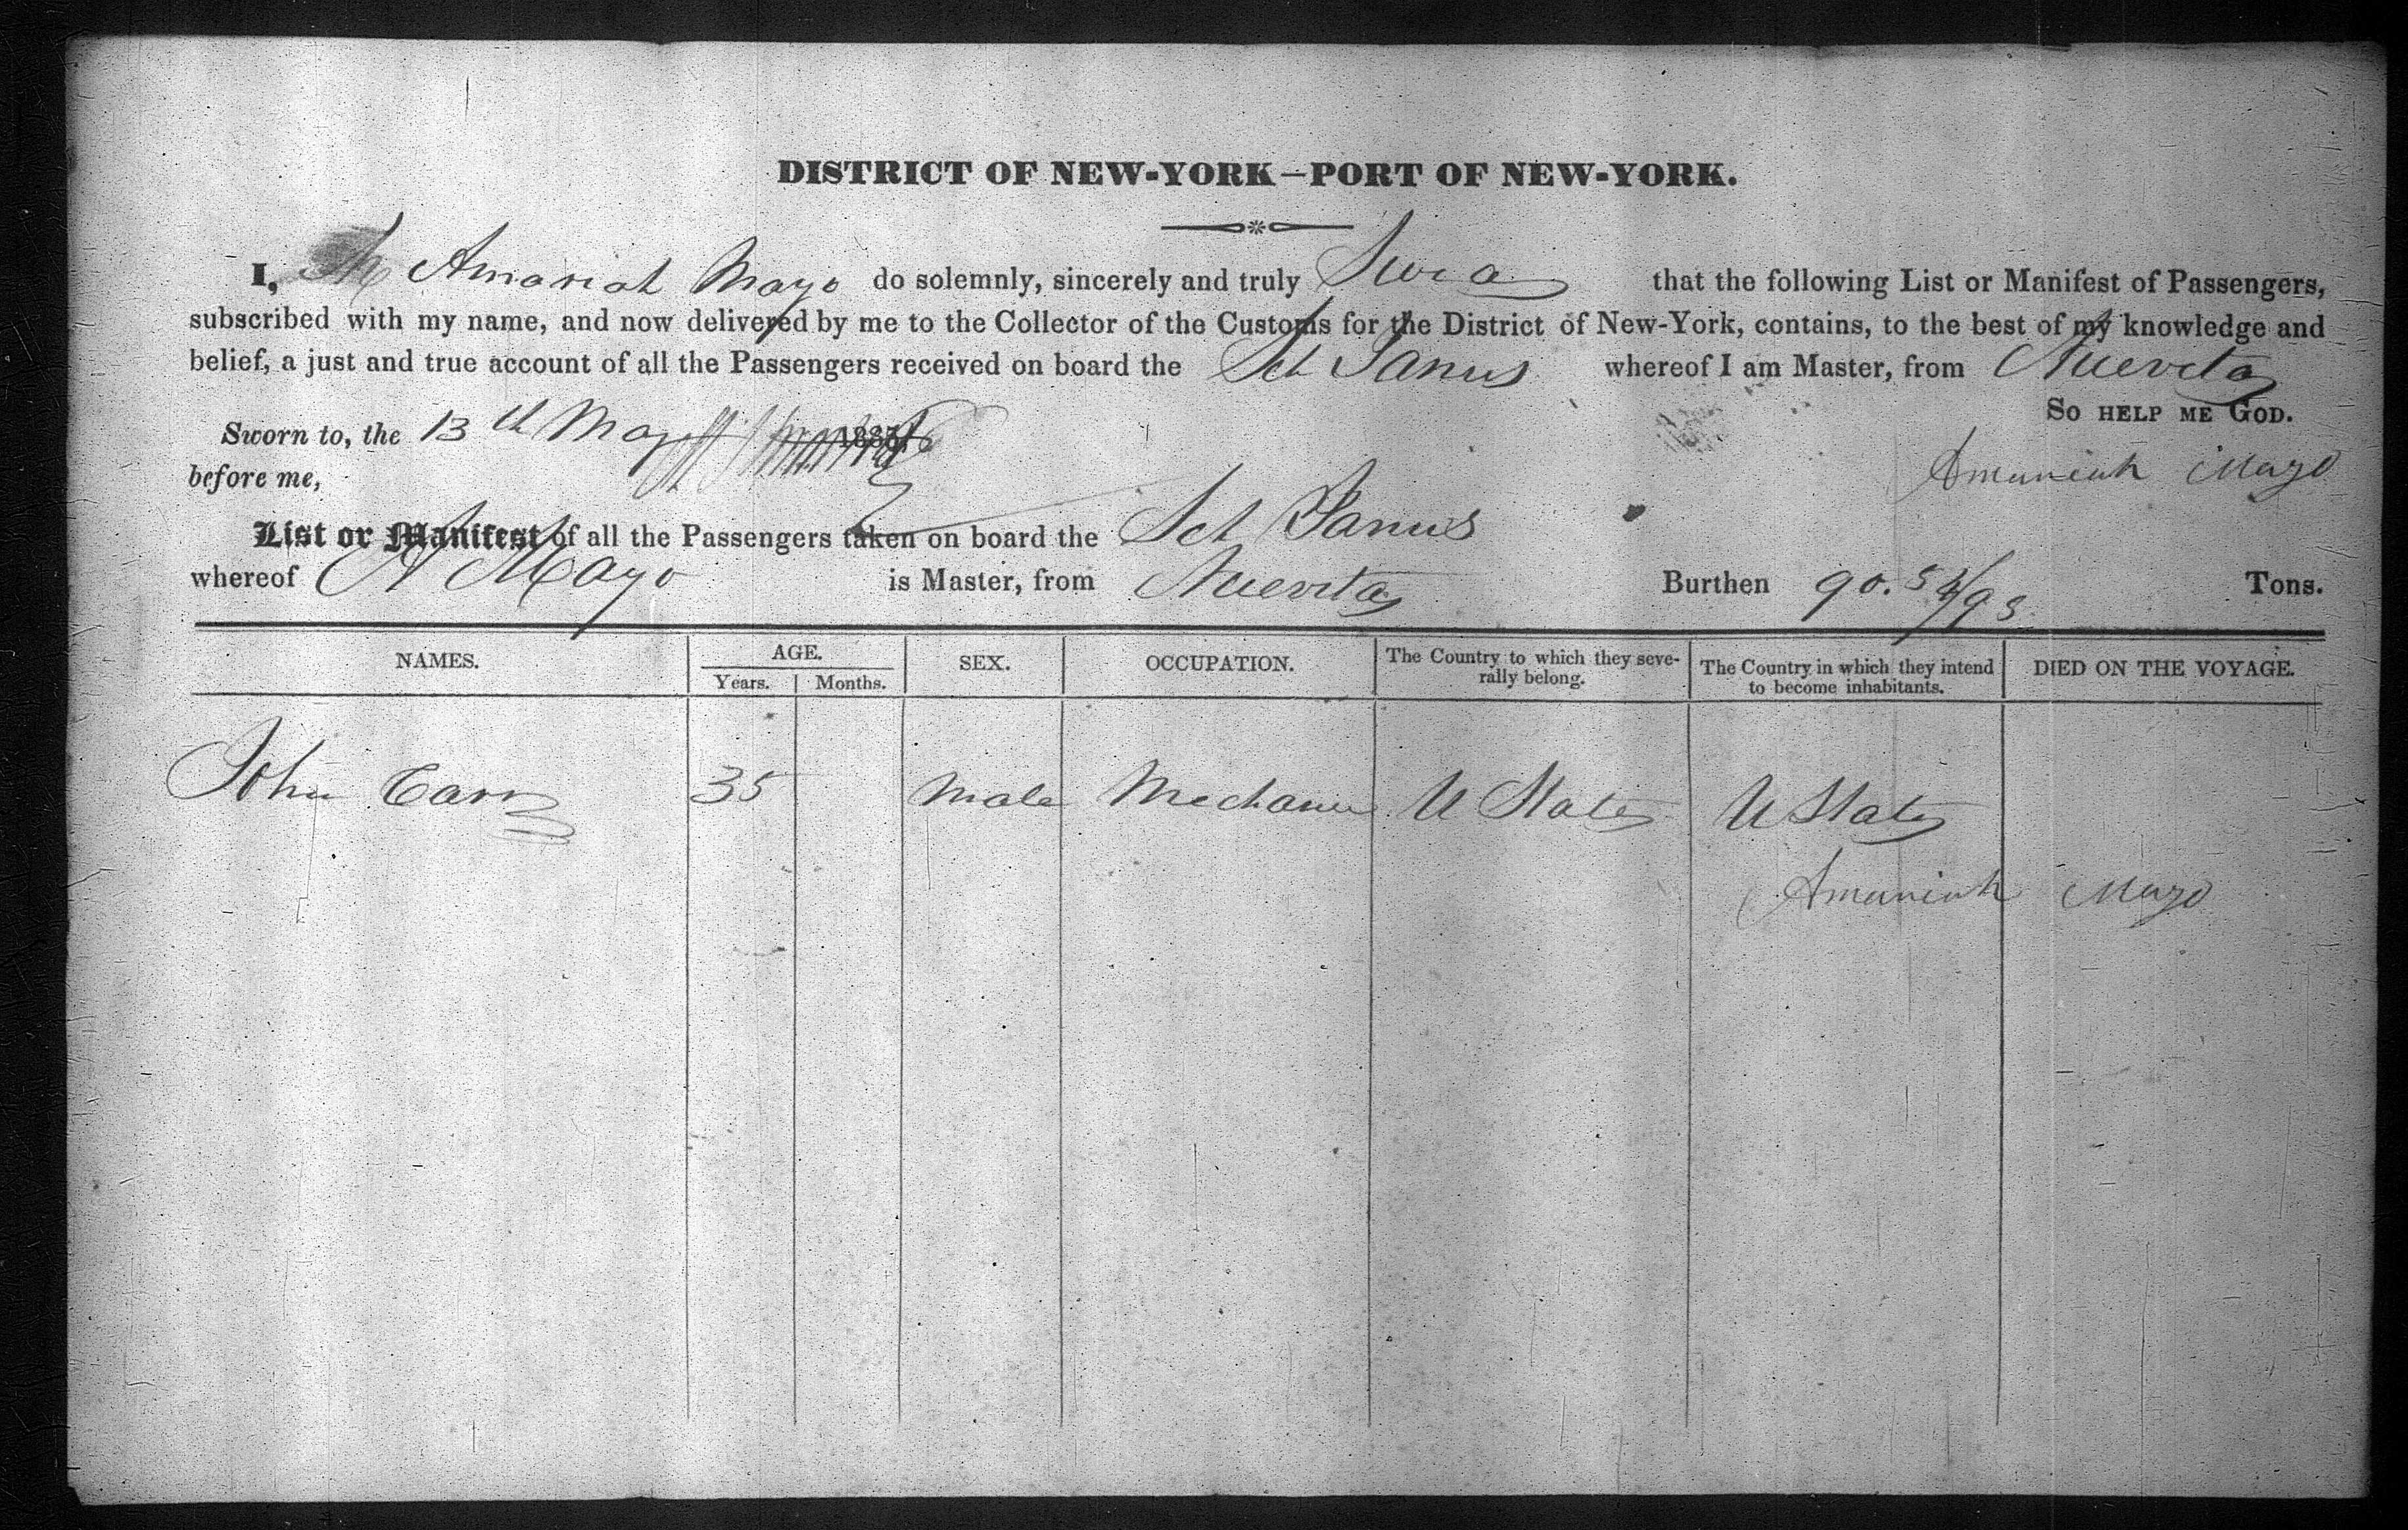 DISTRICT OF NEW-YORK—PORT OF NEW-YORK.
I, Amariah Mayo do solemnly, sincerely and truly Swea that the following List or Manifest of Passengers,
subscribed with my name, and now delivered by me to the Collector of the Customs for the District of New-York, contains, to the best of my knowledge and
belief, a just and true account of all the Passengers received on board the Sch Janus whereof I am Master, from Nuevitas
So help me God.
Sworn to, the 13th May
before me,
Amariah Mayo
List or Manifest of all the Passengers taken on board the Sch Janus
whereof A Mayo is Master, from Nuevitas Burthen 90.54/95 Tons.
NAMES. AGE. SEX. OCCUPATION. The Country to which they seve-rally belong. The Country in which they intend to become inhabitants. DIED ON THE VOYAGE.
Years. Months.
John Carr 35 Male Mechanic U States U States
Amariah Mayo